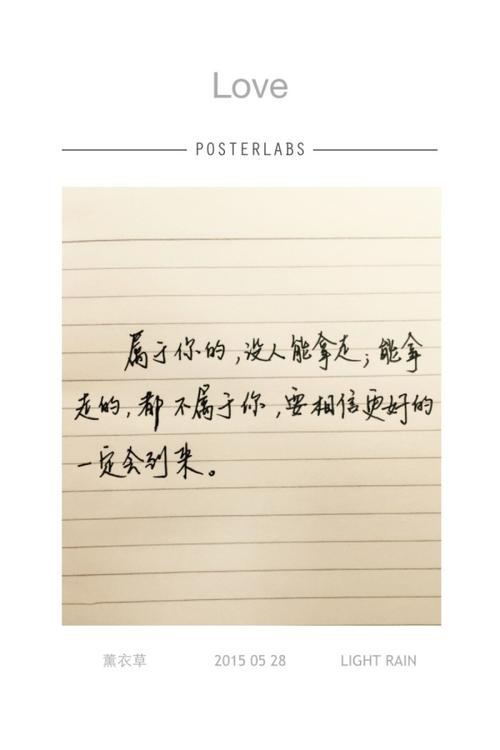 Love
POSTERLABS
属于你的，没人能拿走；能拿
走的，都不属于你，要相信更好的
一定会到来。
薰衣草 2015 05 28 LIGHT RAIN